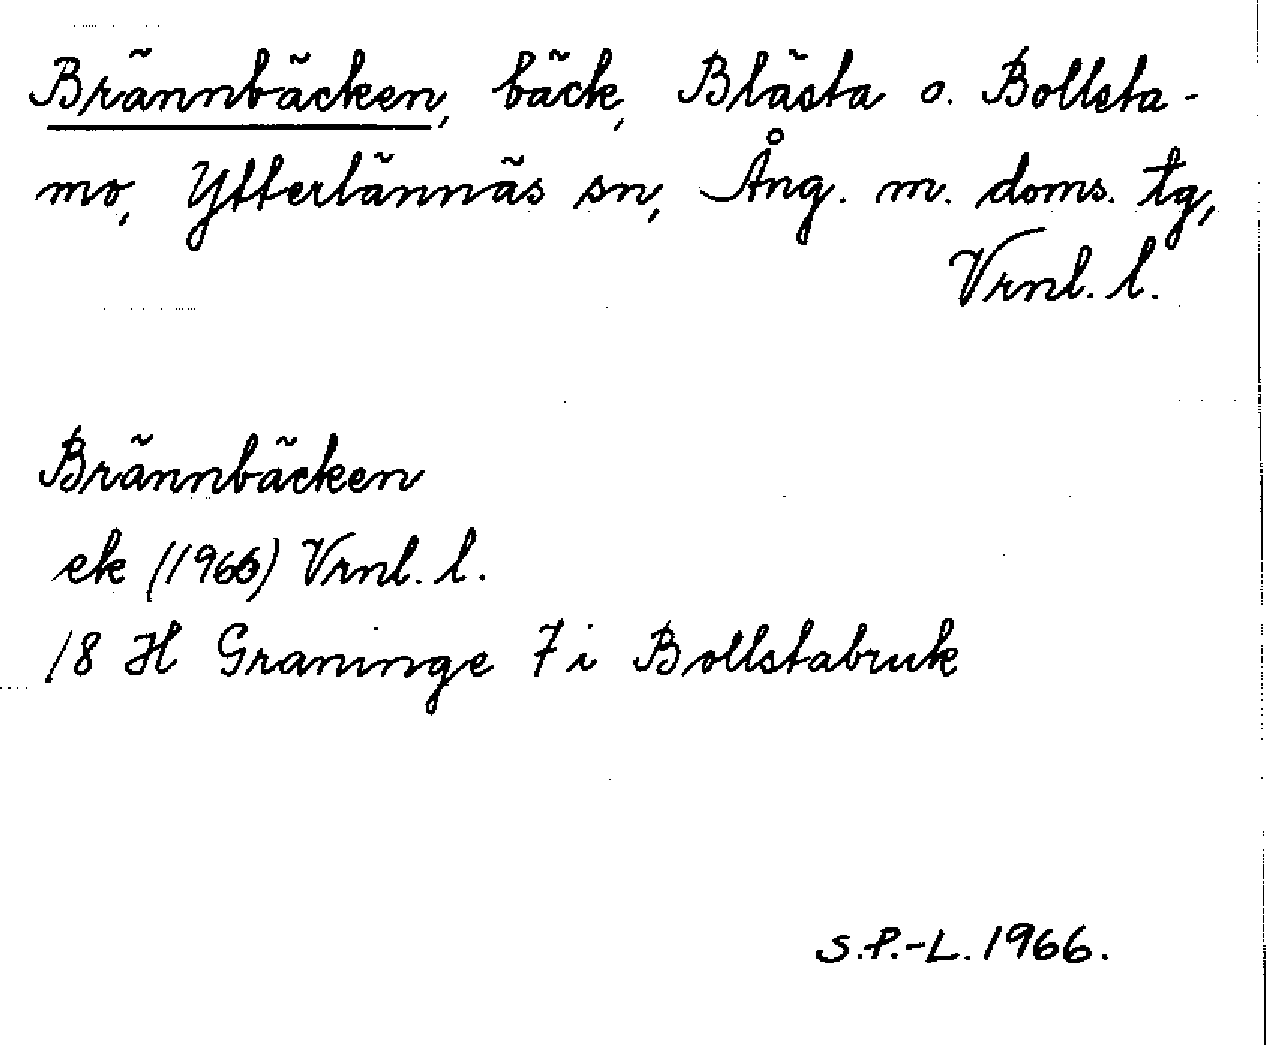 Brännbäcken, bäck, Blästa o. Bollsta-
mo, Ytterlännäs sn, Ång. m. doms. tg,
Vrnl. l.
Brännbäcken
ek (1966) Vrnl. l.
18 H Graninge 7 i Bollstabruk
S.P.-L. 1966.